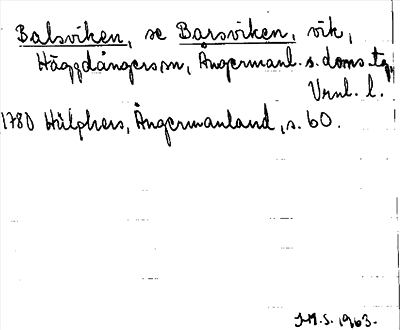 Balsviken, se Barsviken, vik,
Häggdångers sn, Ångermanl. s. doms. tg,
Vrnl. l.
1780 Hülphers, Ångermanland, s. 60.
J.M.S. 1963.